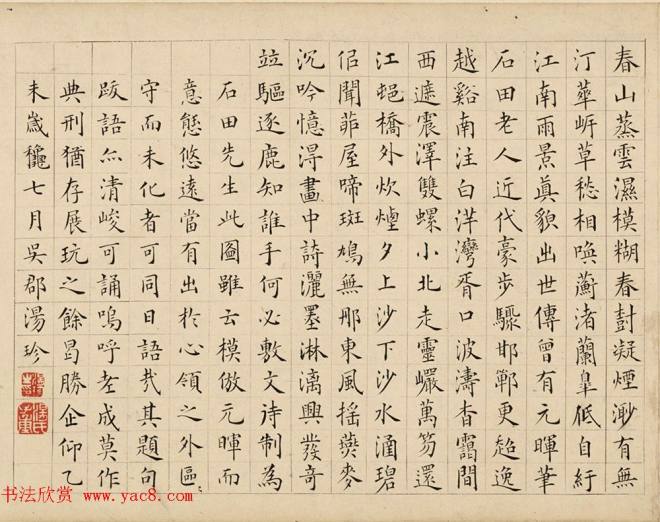 春山蒸雲濕模糊春封凝煙渺有無
汀華岸草愁相喚蘅渚蘭皐低自紆
江南雨景真貌出世傳曾有元暉筆
石田老人近代豪步驟邯鄲更超逸
越谿南注白洋灣胥口波濤杳靄間
西遮震澤雙螺小北走靈巖萬笏還
江蜺橋外炊煙夕上沙下沙水涵碧
侣聞茆屋啼斑鳩無那東風揺燕麥
沉吟憶淂畫中詩灑墨淋漓興發奇
竝驅逐鹿知誰手何必敷文詩制為
石田先生此圖雖云模倣元暉而
意態悠遠當有出於心領之外區
守而未化者可同日語㢤其題句
跋語亦清峻可誦嗚呼老成莫作
典刑猶存展玩之餘曷勝企仰乙
未歲龝七月吳郡湯珍
书法欣赏 www.yac8.com